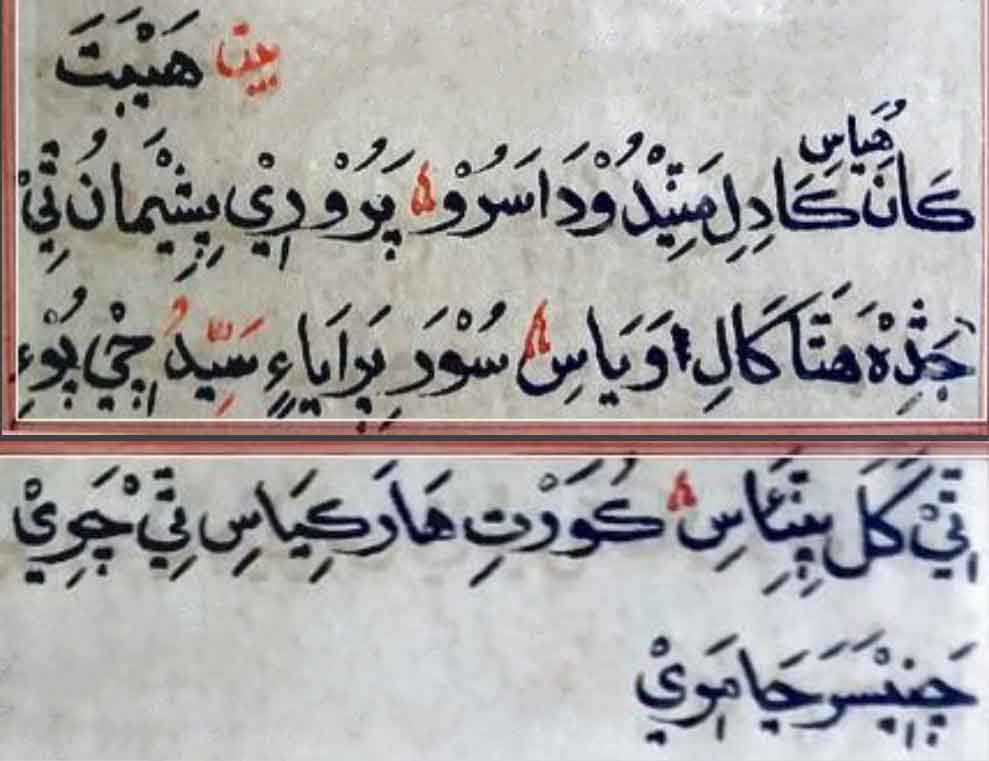 بيت هَيْبَتَ
هُياسِ
كَانَ كَادِلِ مَنِيْدُوْدَا سَرُوْ پَرُوْرِيْ پِشِيْمَانُ تِيْ
جَڎِهْ هَتَا كَالِ اوَيَاسِ سُوْرَ پِرَايَاءِ سَيِّدُ چِيْ پُوْءِ
تِيْ كَلَ پِيَئَاسِ كُوَرْتِ هَارَ كِيَاسِ تِيْ چَرِيْ
چَنِيْسَرَ جَامَوِيْ